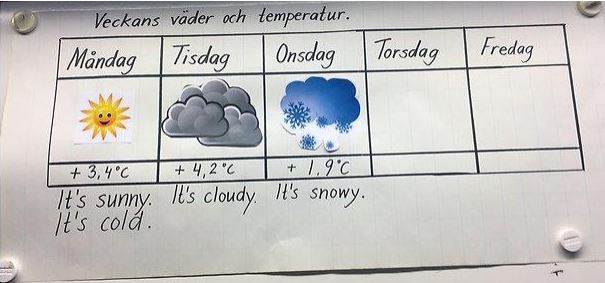 Veckans väder och temperatur.
Måndag Tisdag Onsdag Torsdag Fredag
+ 3,4°C + 4,2°C + 1,9°C
It's sunny. It's cloudy. It's snowy.
It's cold.